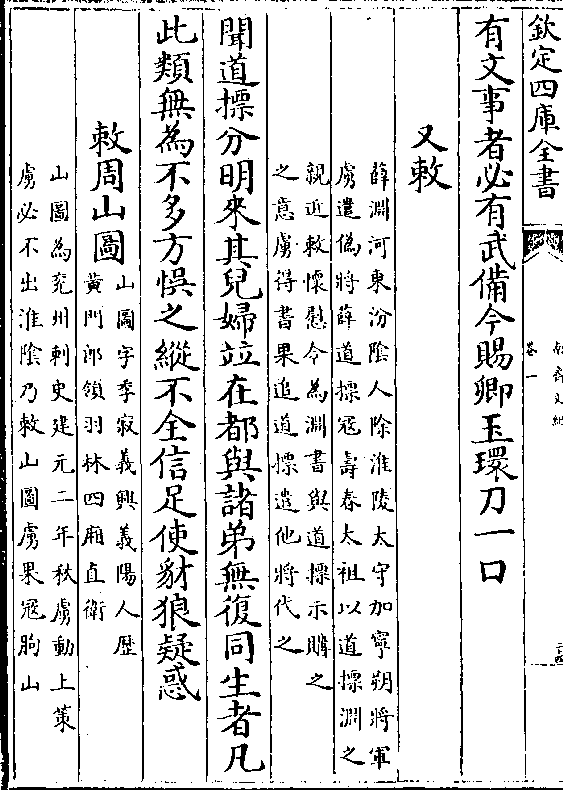 欽定四庫全書
南齊文紀
卷一
二十四
有文事者必有武備今賜卿玉環刀一口
又敕
薛淵河東汾陰人除淮陵太守加寧朔將軍
虜遣偽將薛道摽寇壽春太祖以道摽淵之
親近敕懷慰今為淵書與道摽示購之
之意虜得書果追道摽遣他將代之
聞道摽分明來其兒婦竝在都與諸弟無復同生者凡
此類無為不多方悞之縱不全信足使豺狼疑惑
敕周山圖
山圖字季寂義興義陽人歷
黄門郎領羽林四廂直衛
山圖為兖州刺史建元二年秋虜動上策
虜必不出淮陰乃敕山圖虜果寇朐山